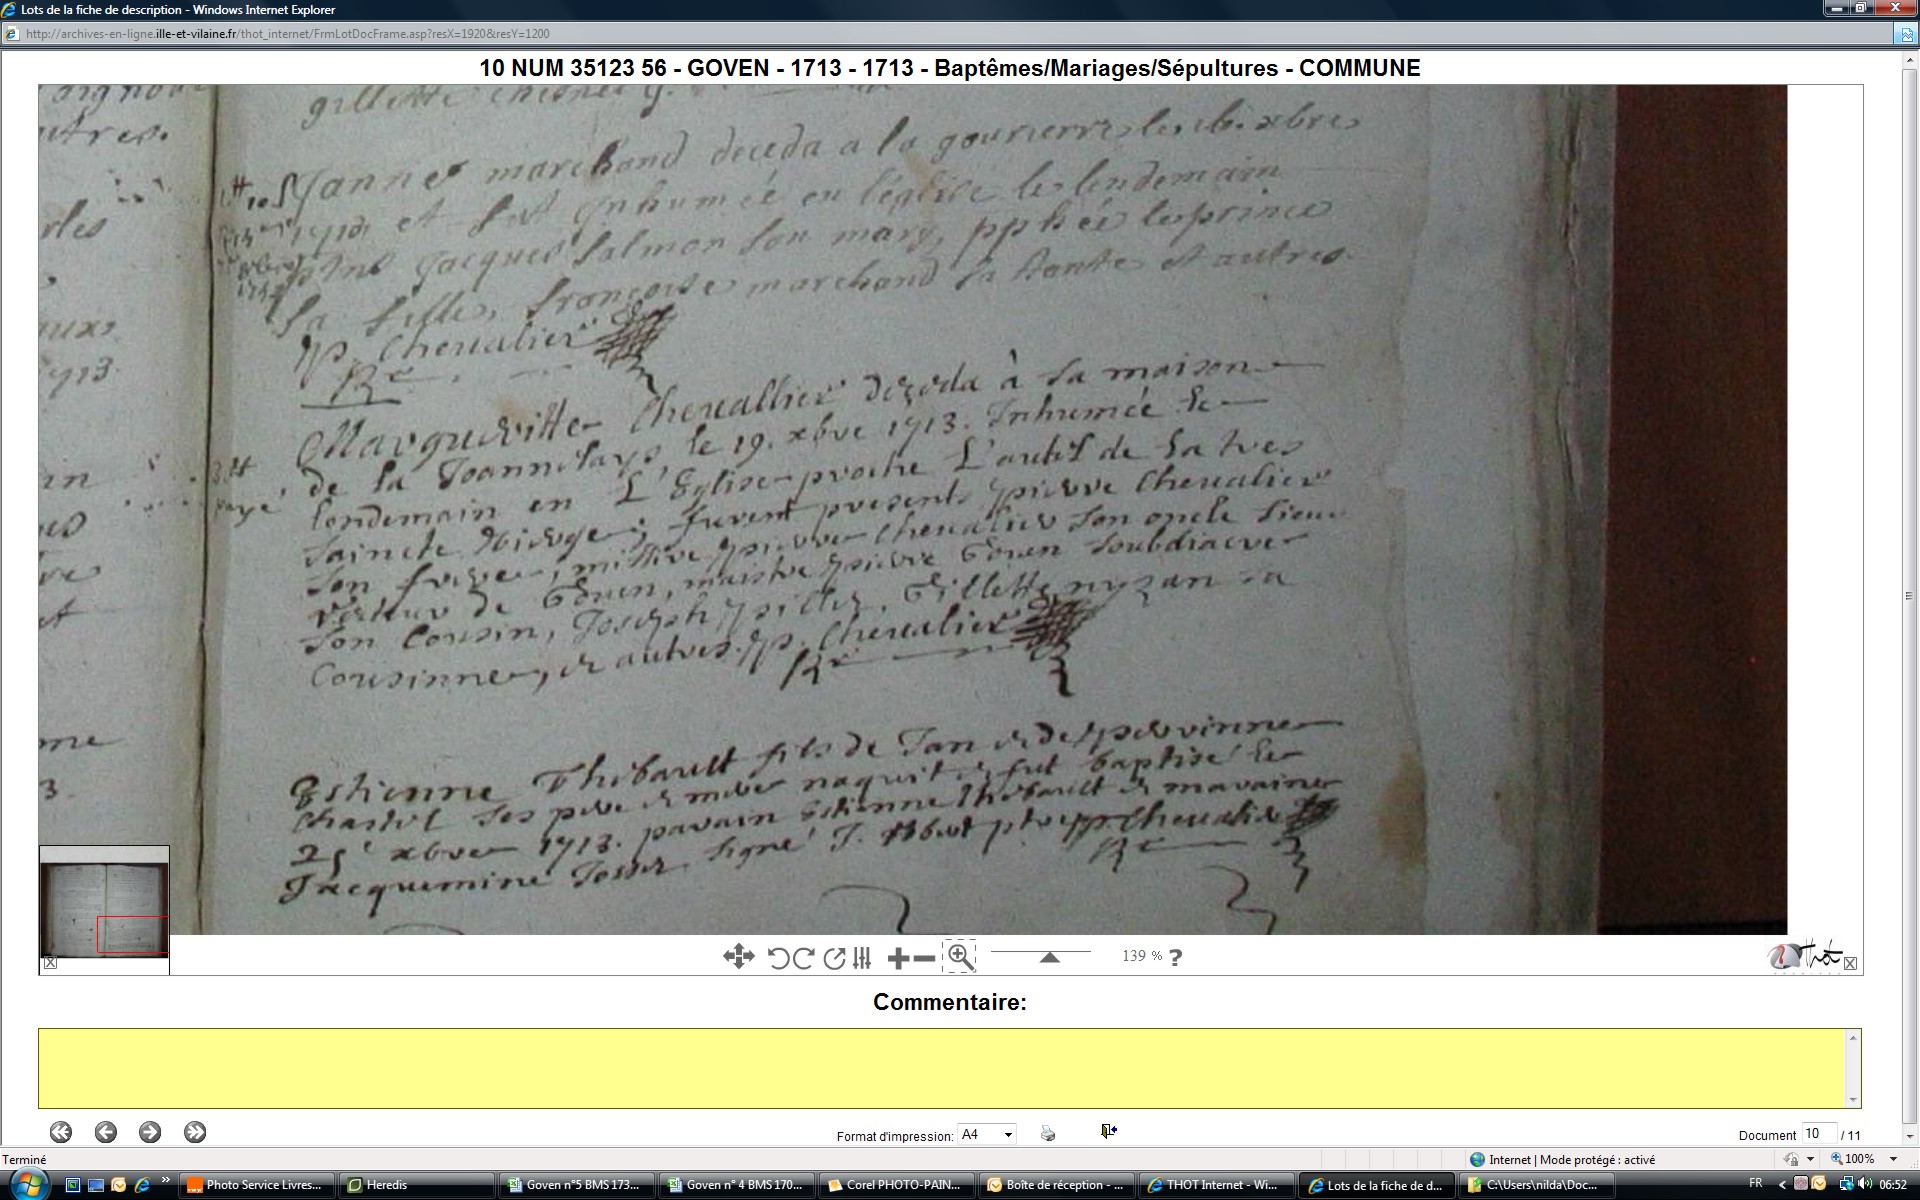 Lots de la fiche de description - Windows Internet Explorer
http://archives-en-ligne.ille-et-vilaine.fr/thot_internet/FrmLotDocFrame.asp?resX=1920&resY=1200
10 NUM 35123 56 - GOVEN - 1713 - 1713 - Baptêmes/Mariages/Sépultures - COMMUNE
utres.
gillette
Janne marchand deceda a la le 16. xbre
1713 et fut Inhumée en l'églice le lendemain
Jacques Salmon son mary, le prince
sa fille, francoise marchand sa tante et autres.
p. Chevalier
Rr
Margueritte Chevallier dezeda à sa maison
de la le 19. xbre 1713. Inhumée le
lendemain en L'Eglise proche L'autel de la tres
saincte vierge; furent presents pierre Chevalier
son frere, missire pierre Chevalier son oncle sieur
Recteur de Goven, maistre pierre Goven soubdiacre
son Cousin, Joseph Gillette nyzan sa
Cousinne, & autres. p. Chevalier
Rr
1713.
3.
payé
Estienne Thibault fils de Jan & de perrinne
Chastel ses pere & mere naquit & fut baptisé le
25e xbre 1713. parain Estienne Thibault & maraine
Jacquemine Josse signé J. p. Chevalier
Rr
139 % ?
Thot
Commentaire:
Format d'impression: A4
Document 10 / 11
Terminé
Internet | Mode protégé : activé
100%
Photo Service Livres...
Heredis
Goven n°5 BMS 173...
Goven n° 4 BMS 170...
Corel PHOTO-PAIN...
Boîte de réception - ...
THOT Internet - Wi...
Lots de la fiche de d...
C:\Users\nilda\Doc...
FR
06:52